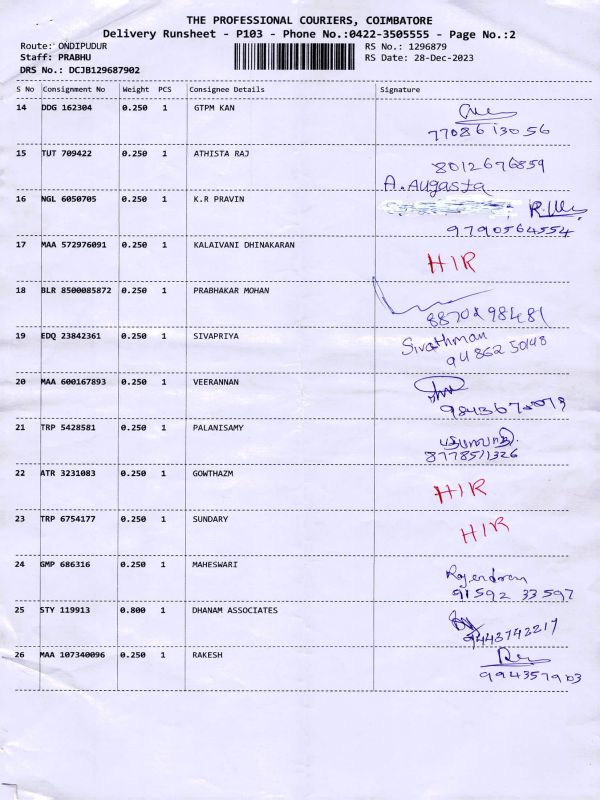 THE PROFESSIONAL COURIERS, COIMBATORE
Delivery Runsheet - P103 - Phone No.:0422-3505555 - Page No.:2
Route: ONDIPUDUR
RS No.: 1296879
Staff: PRABHU
RS Date: 28-Dec-2023
DRS No.: DCJB129687902
S No Consignment No Weight PCS Consignee Details Signature
14 DDG 162304 0.250 1 GTPM KAN
7708613056
15 TUT 709422 0.250 1 ATHISTA RAJ
8012676859
A. Augasta
16 NGL 6050705 0.250 1 K.R PRAVIN
9790564554
17 MAA 572976091 0.250 1 KALAIVANI DHINAKARAN
HIR
18 BLR 8500085872 0.250 1 PRABHAKAR MOHAN
19 EDQ 23842361 0.250 1 SIVAPRIYA
Sivathman
94862 50148
20 MAA 600167893 0.250 1 VEERANNAN
21 TRP 5428581 0.250 1 PALANISAMY
8778511326
22 ATR 3231083 0.250 1 GOWTHAZM
HIR
23 TRP 6754177 0.250 1 SUNDARY
HIR
24 GMP 686316 0.250 1 MAHESWARI
Rajendran
91592 33597
25 STY 119913 0.800 1 DHANAM ASSOCIATES
9443743217
26 MAA 107340096 0.250 1 RAKESH